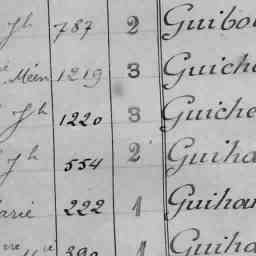 Jh 787 2 Guibo
Méen 1219 3 Guiche
Jh 1220 3 Guiche
Jh 554 2 Guiha
arie 222 1 Guihar
1 Guiha